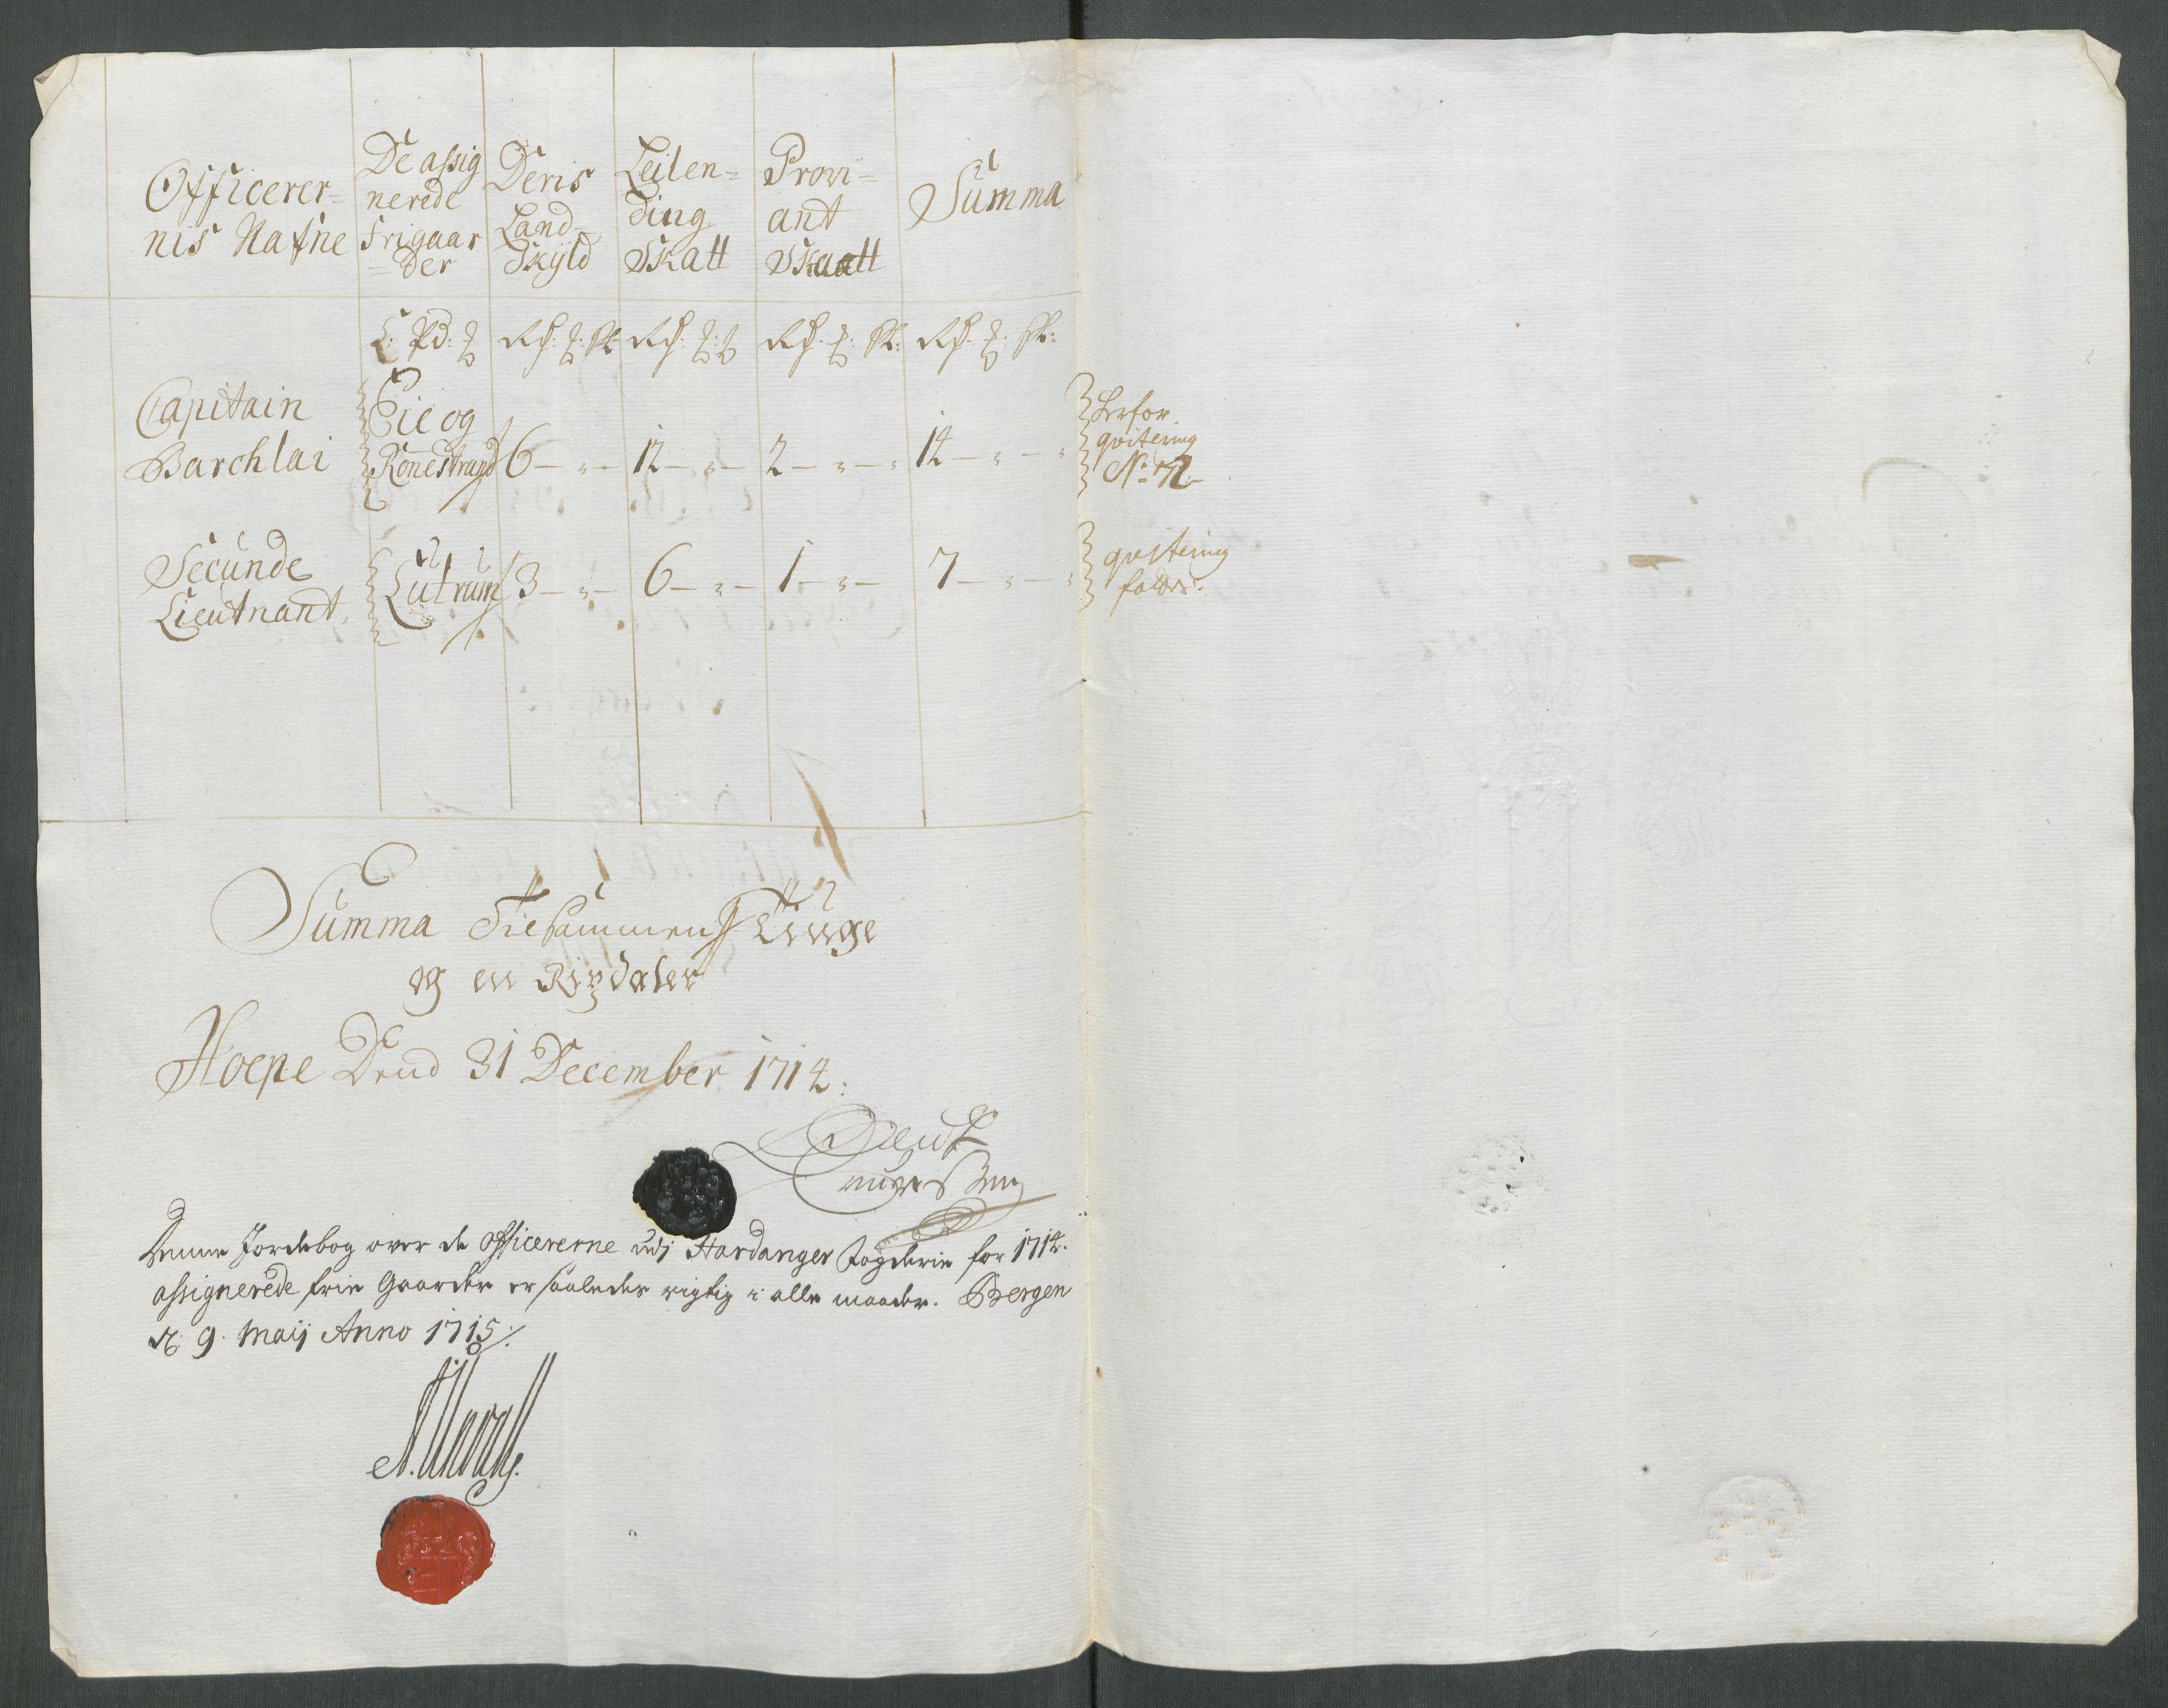 Officerer=
nis Nafne
De assig
nerede
frigaar
=der
Deris
Land-
Skÿld
Leilen=
ding
Skatt
Provi=
ant
Skaatt
Summa
Capitain
Barchlai
Eie og
Konestrand
6 — " — 12 — " — 2 — " — " 14 — " — "
herfor
qvitering
No
Secunde
Lieutnant
Lutrum
3 — " — 6 — " — 1 — " — 7 — " — "
qvitering
Summa Tilsammen Tiuge
og en Rixdaler
Hoepe Dend 31 December 1714:
Denne Jordebog over de officererne udj Hardanger fogderie for 1714.
assignerede frie Gaarder er saaledes rigtig i alle maader. Bergen
d: 9. Maij Anno 1715/: